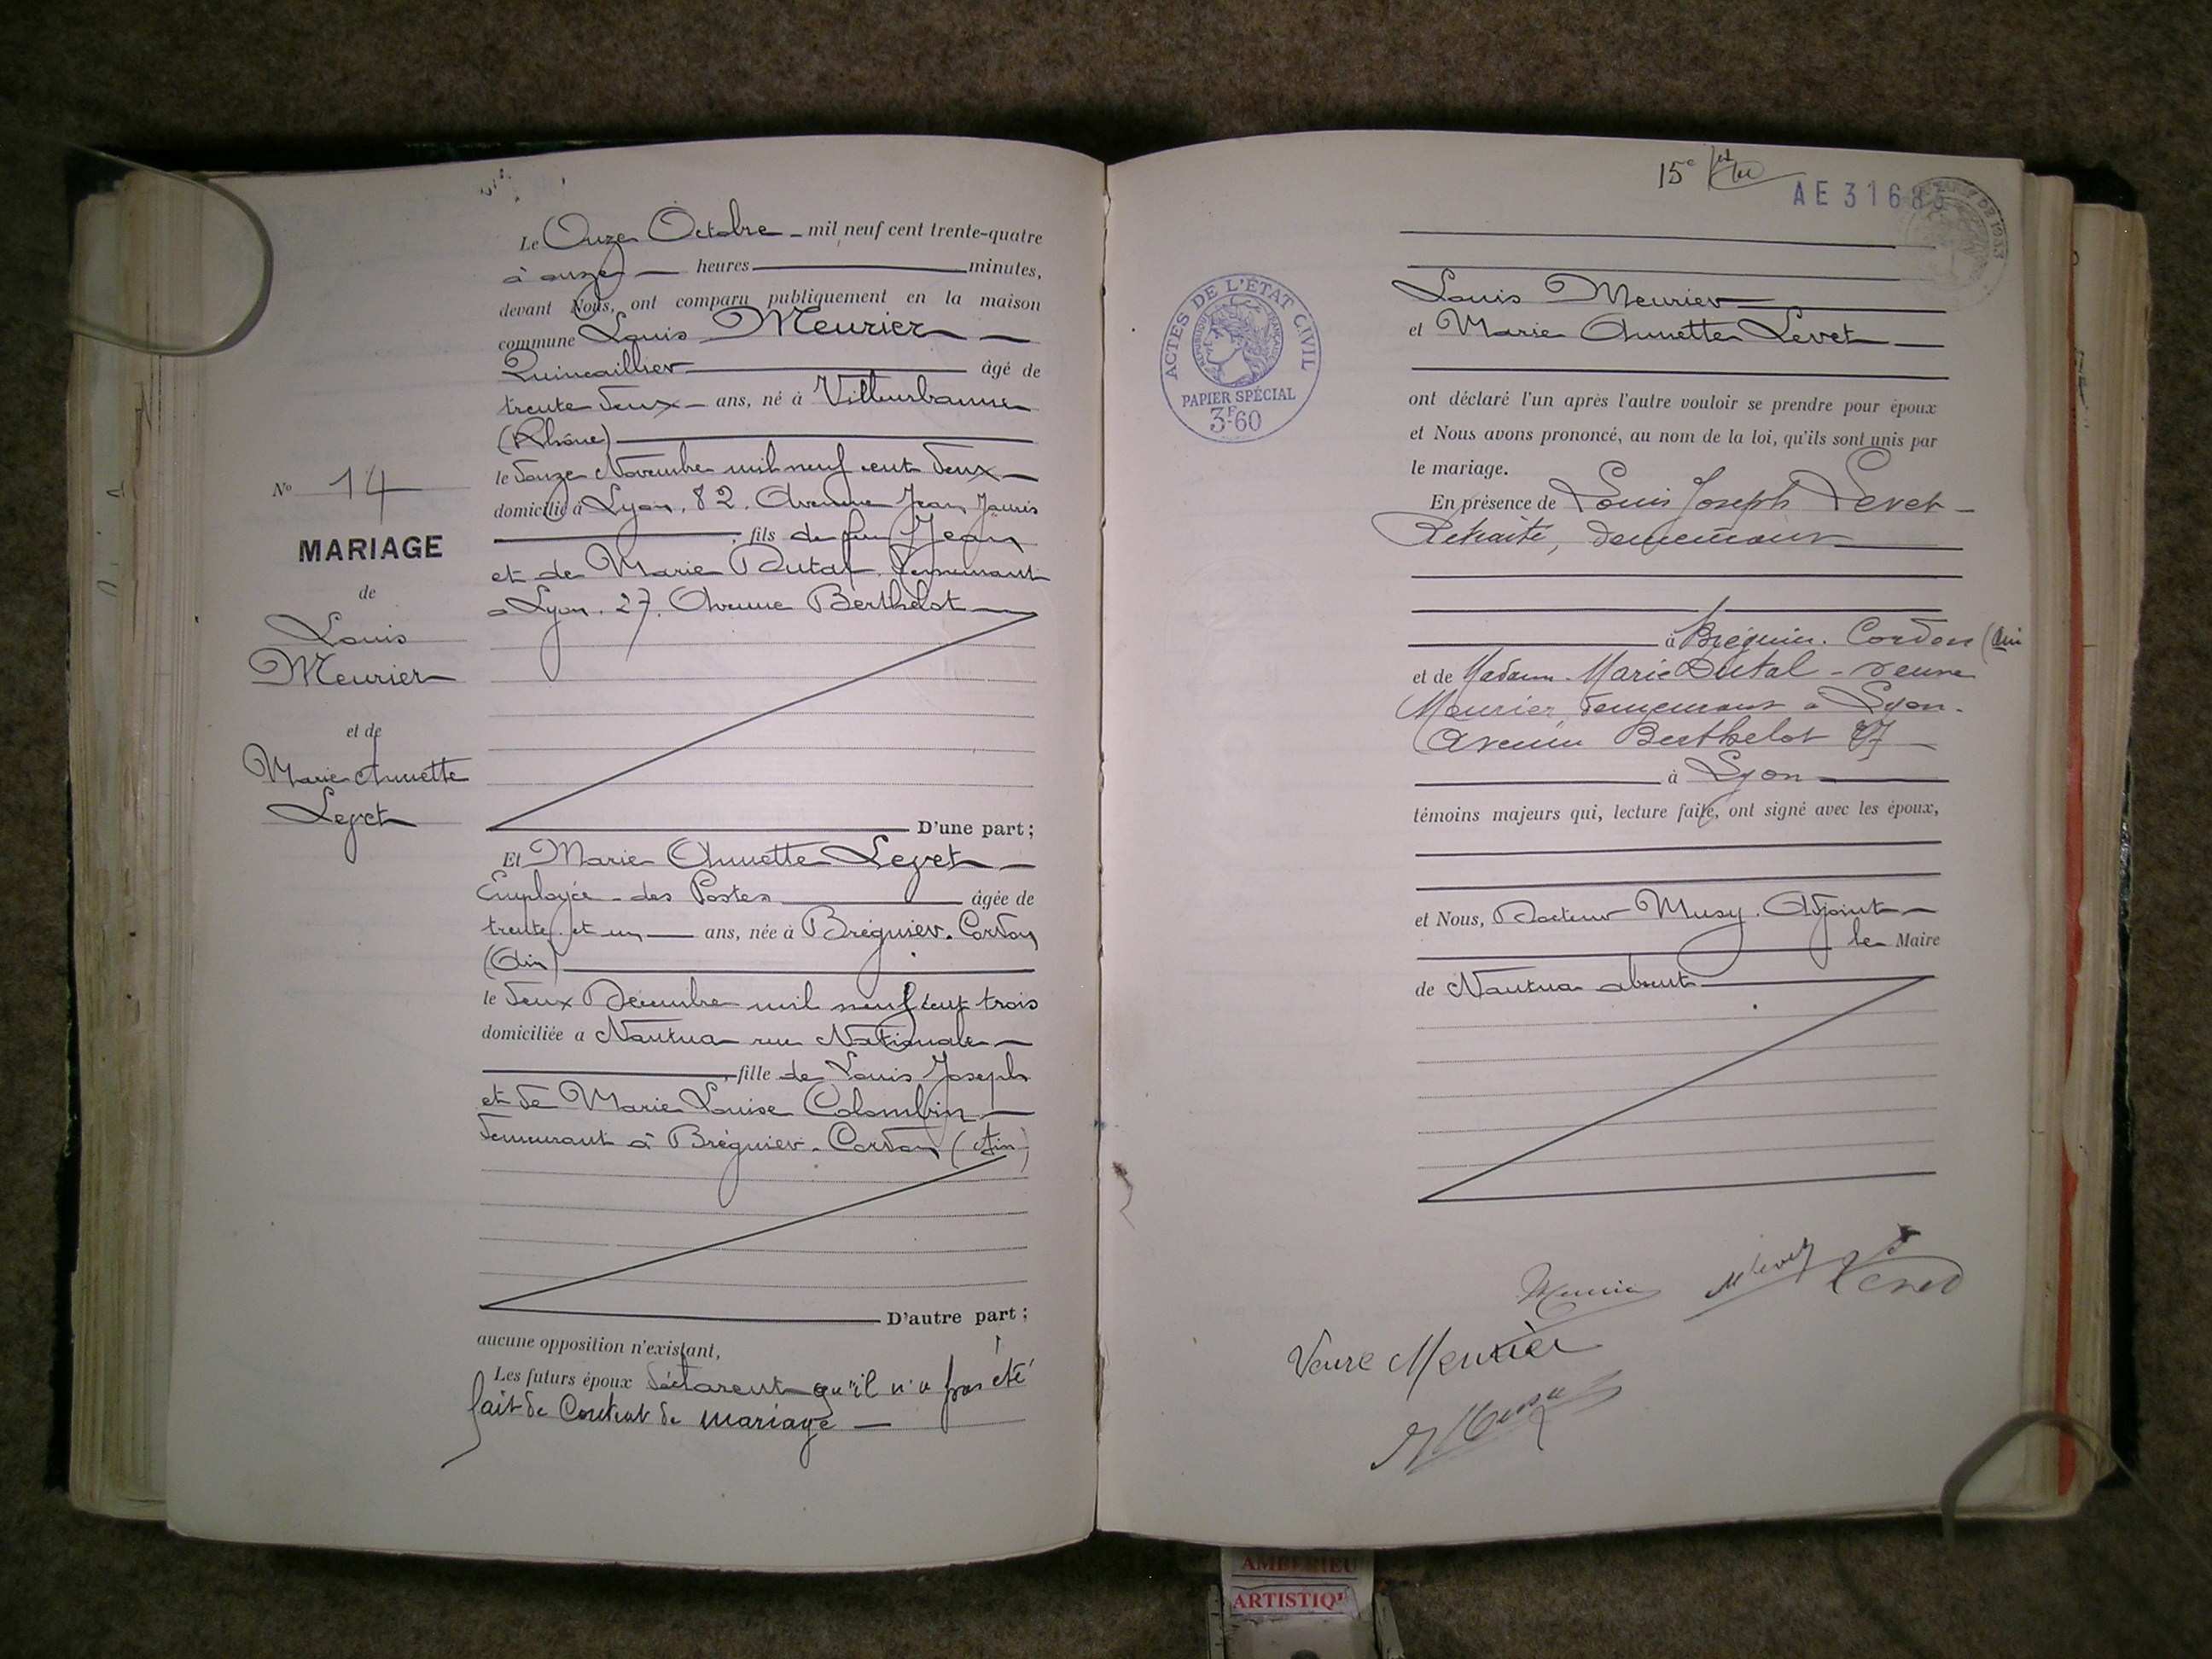 Le Onze Octobre - mil neuf cent trente-quatre
à onze heures minutes,
devant Nous, ont comparu publiquement en la maison
commune Louis Meurier
Quincaillier âgé de
trente deux ans, né à Villeurbanne
(Rhône)
le douze Novembre mil neuf cent deux
domicilié à Lyon, 82, Avenue Jean Jaurès
, fils de feu Jean
et de Marie Dutal demeurant
à Lyon, 27, Avenue Berthelot
No 14
MARIAGE
de
Louis
Meurier
et de
Marie Annette
Levet
D'une part;
Et Marie Annette Levet
Employée des Postes âgée de
trente et un ans, née à Brégnier-Cordon
(Ain)
le deux Décembre mil neuf cent trois
domiciliée a Nantua rue Nationale
, fille de Louis Joseph
et de Marie Louise Colombin
demeurant à Brégnier-Cordon (Ain)
D'autre part;
aucune opposition n'existant,
Les futurs époux déclarent qu'il n'a pas été
fait de Contrat de mariage
15e
AE 3168
ACTES DE L'ÉTAT CIVIL
RÉPUBLIQUE FRANÇAISE
PAPIER SPÉCIAL
3F60
Louis Meurier
et Marie Annette Levet
ont déclaré l'un après l'autre vouloir se prendre pour époux
et Nous avons prononcé, au nom de la loi, qu'ils sont unis par
le mariage.
En présence de Louis Joseph Levet
Retraité, demeurant
à Brégnier-Cordon (Ain
et de Madame Marie Dutal - veuve
Meurier, demeurant à Lyon-
Avenue Berthelot 27
à Lyon
témoins majeurs qui, lecture faite, ont signé avec les époux,
et Nous, Docteur Musy, Adjoint
le Maire
de Nantua absent
Meurier M Levet Levet
Veuve Meurier
Musy
AMBERIEU
ARTISTIQ